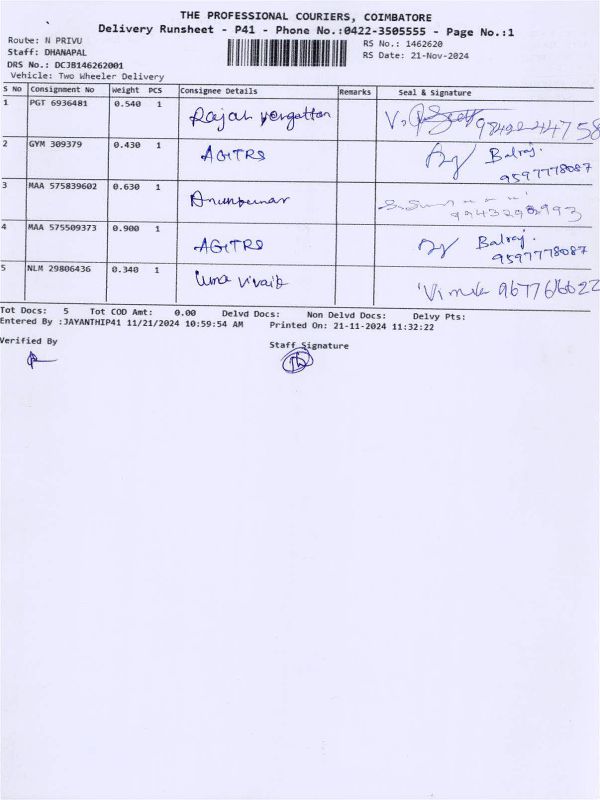 THE PROFESSIONAL COURIERS, COIMBATORE
Delivery Runsheet - P41 - Phone No.:0422-3505555 - Page No.:1
Route: N PRIVU
RS No.: 1462620
Staff: DHANAPAL
RS Date: 21-Nov-2024
DRS No.: DCJB146262001
Vehicle: Two Wheeler Delivery
S No Consignment No Weight PCS Consignee Details Remarks Seal & Signature
1 PGT 6936481 0.540 1 Rajah
2 GYM 309379 0.430 1 AGTRS Balraj.
9597778087
3 MAA 575839602 0.630 1 Arunkumar
4 MAA 575509373 0.900 1 AGTRS Balraj.
9597778087
5 NLM 29806436 0.340 1 Uma
Tot Docs: 5 Tot COD Amt: 0.00 Delvd Docs: Non Delvd Docs: Delvy Pts:
Entered By :JAYANTHIP41 11/21/2024 10:59:54 AM Printed On: 21-11-2024 11:32:22
Verified By
Staff Signature